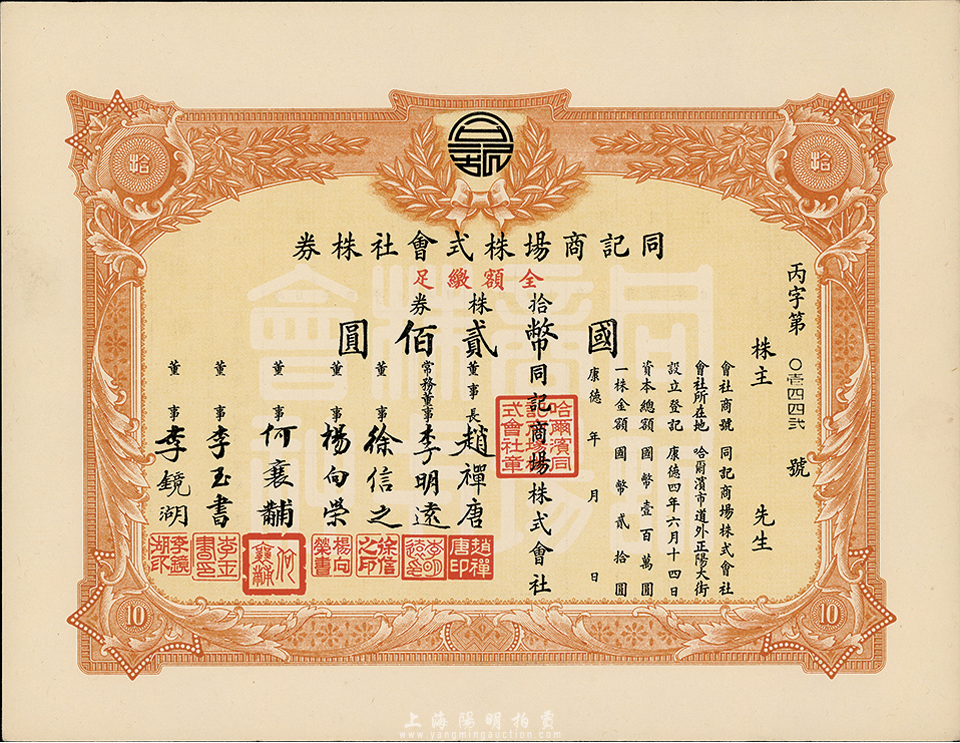 同記商場株式會社株券
全額繳足
拾株券
國幣貳佰圓
丙字第〇壹四四弍號
株主 先生
會社商號 同記商場株式會社
會社所在地 哈爾濱市道外正陽大街
設立登記 康德四年六月十四日
資本總額 國幣壹百萬圓
一株金額 國幣貳拾圓
康德 年 月 日
同記商場株式會社
哈爾濱同
記商場株
式會社章
董事長 趙禪唐
常務董事 李明遠
董事 徐信之
董事 楊向榮
董事 何襄黼
董事 李玉書
董事 李鏡湖
趙禪唐印
徐信之印
楊向榮書
何襄黼
李玉書印
李鏡湖印
拾
拾
10
10
上海陽明拍賣
www.yangmingauction.com